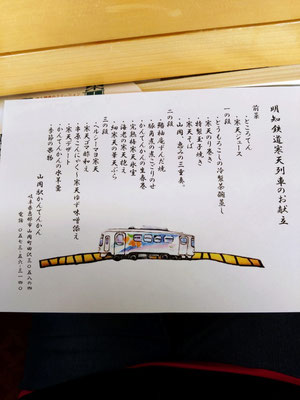 明知鉄道寒天列車のお献立
前菜
・ところてん
・寒天ジュース
一の段
・とうもろこしの冷製茶碗蒸し
・寒天のり巻き
・特製玉子焼き
・寒天そば
・山岡、恵みの三重奏。
二の段
・鱒柚庵ずんだ焼
・豚角煮の煮こごりのせ
・かんてんかんの生春巻
・完熟梅寒天氷室
・海老の寒天穂え
・細寒天の筆天ぷら
三の段
・ヘルシーマヨ寒天
・寒天ゴマ和え
・串原こんにゃく〜寒天ゆず味噌添え
・寒天デザート
・かんてんかんの水羊羹
・季節の果物
山岡駅かんてんかん
岐阜県恵那市山岡町田沢